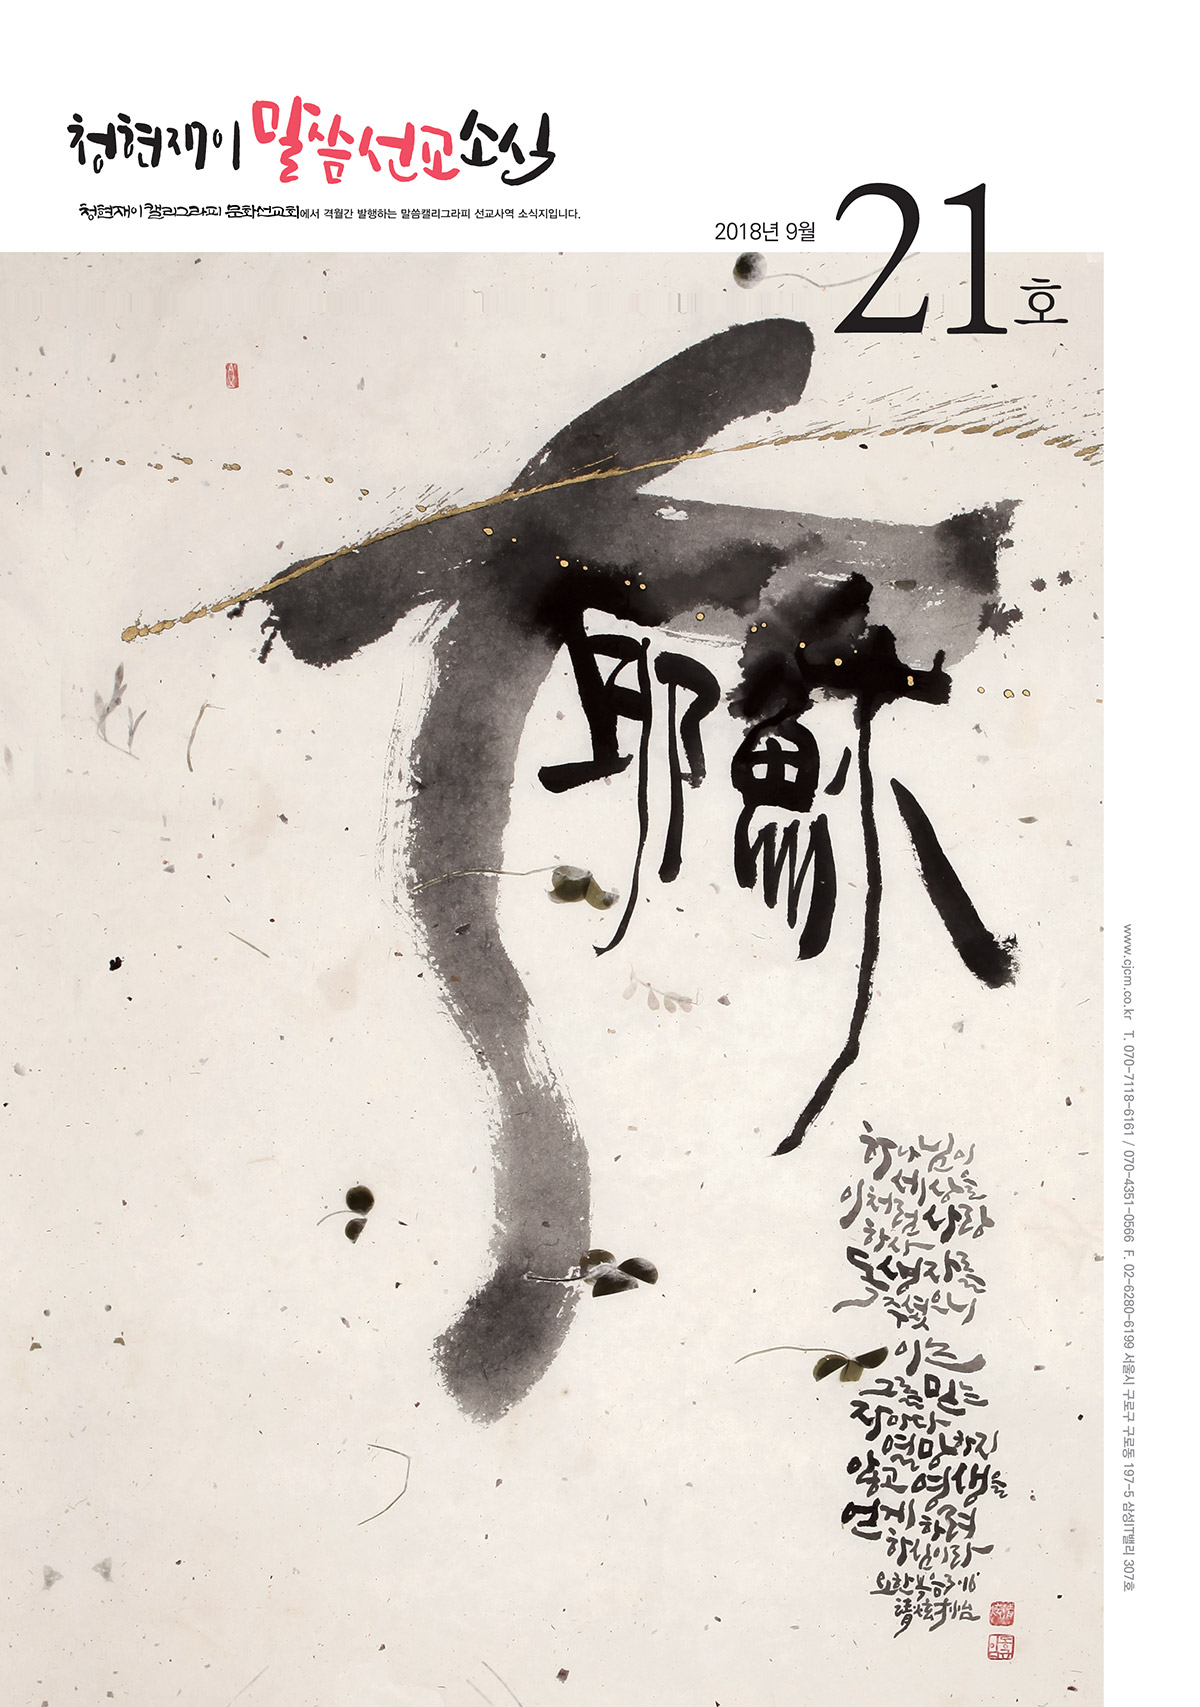 청현재이 말씀선교소식
청현재이캘리그라피 문화선교회에서 격월간 발행하는 말씀캘리그라피 선교사역 소식지입니다.
2018년 9월
21호
耶穌
하나님이
세상을
이처럼 사랑
하사
독생자를
주셨으니
이는
그를 믿는
자마다
멸망하지
않고 영생을
얻게 하려
하심이라
요한복음3:16
www.cjcm.co.kr T. 070-7118-6161 / 070-4351-0566 F. 02-6280-6199 서울시 구로구 구로동 197-5 삼성IT밸리 307호